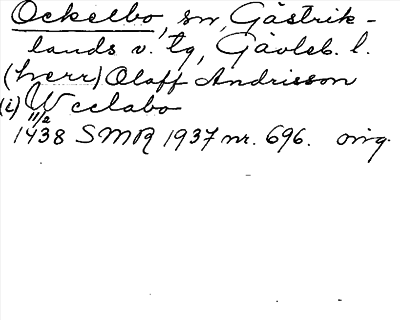 Ockelbo, sn, Gästrik-
lands v. tg, Gävleb. l.
(herr) Olaff Andrisson
(i) Weclabo
11/2
1438 SMR 1937 nr. 696. orig.